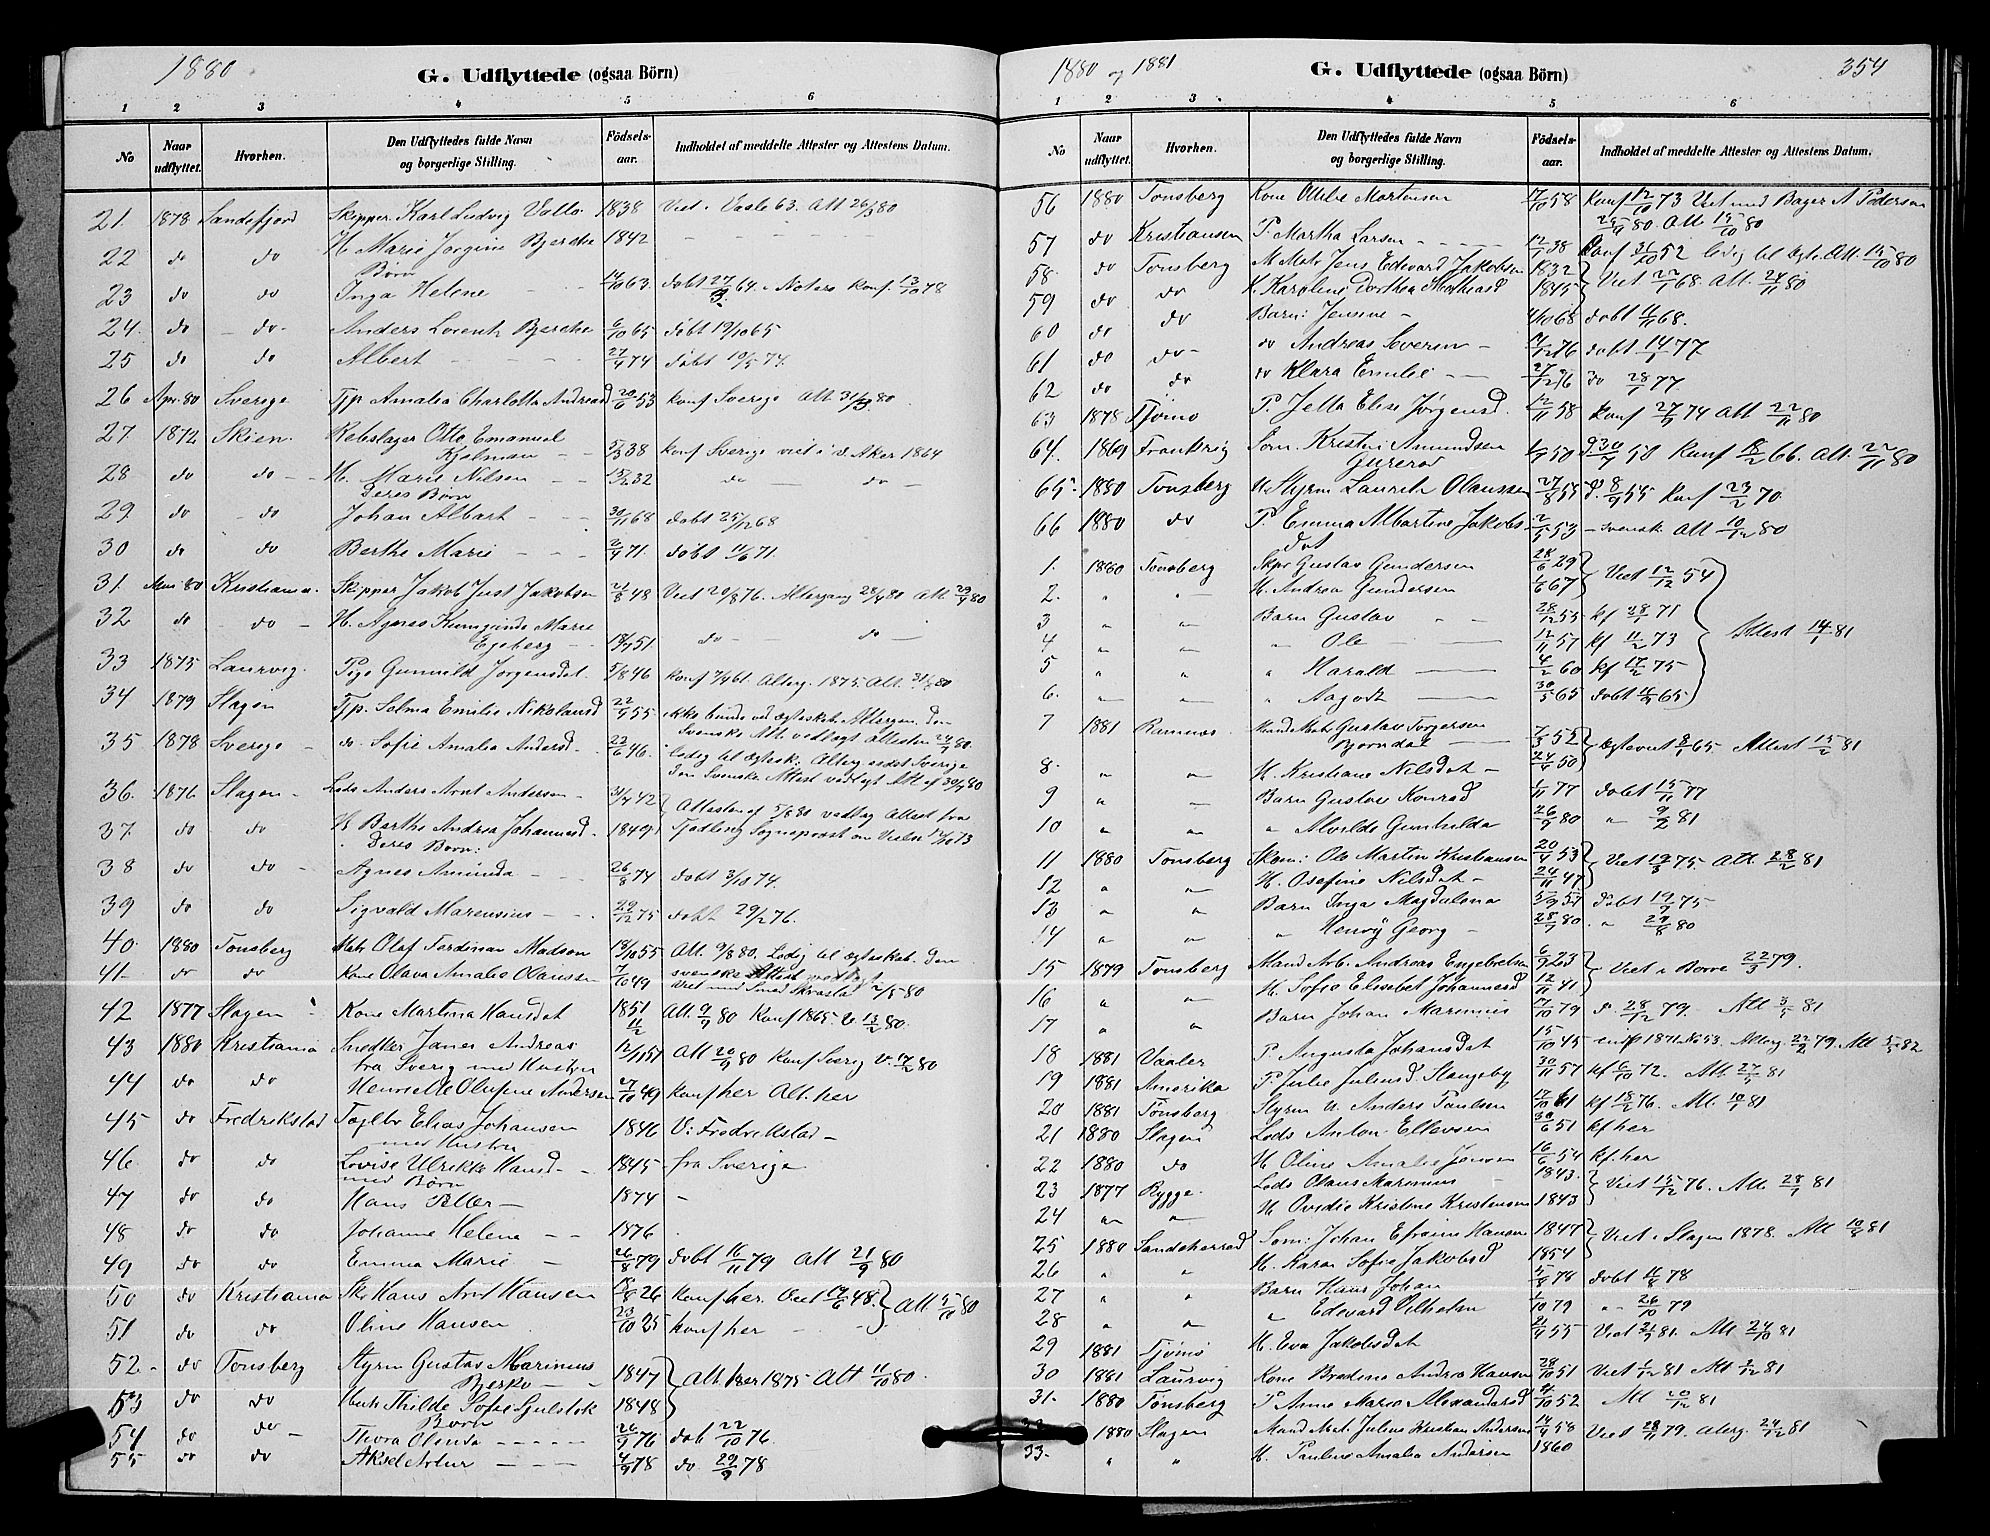 1880
G. Udflyttede (ogsaa Börn)
1 2 3 4 5 6
No Naar udflyttet. Hvorhen. Den Udflyttedes fulde Navn og borgerlige Stilling. Födsels-aar. Indholdet af meddelte Attester og Attestens Datum.
21. 1878 Sandefjord Skipper Karl Ludvig Vallo 1838 Viet i Vaale 63. Att 26/3 80
22 do do H. Marie Jörgine Bjerche 1842 — — —
Børn
23 do do Inga Helene — 14/10 63. döbt 27/3 64 i Noterø konf. 13/10 78
24. do do Anders Lorentz Bjerche 6/10 65 döbt 19/10 65
25 do do Albert — 27/4 74 döbt 19/5 74.
26 Apr. 80 Sverige Tjp. Amalia Charlotta Andreasd 20/6 53 konf Sverige Att 31/3 80.
27. 1872 Skien Rebslager Otto Emanuel
Kjelman — 5/3 38 konf Sverige viet i V. Aker 1864
28 do do H. Marie Nilsen — 15/2 32 do — do —
Deres Börn
29 do do Johan Albert — 30/11 68 döbt 25/12 68
30 do do Berthe Marie — 2/4 71. döbt 11/6 71.
31. Mai 80 Kristiania. Skipper Jakob Just Jakobsen 21/8 48 Viet 20/8 76. Altergang 28/4 80 Att 29/4 80
32 do do H. Agnes Kunigunde Marie
Egeberg — 18/7 51 do — do —
33 1875 Laurvig. Pige Gunnild Jørgensdat. 5/8 46 konf 7/4 61. Alterg. 1875. Att. 31/5 80
34 1879 Slagen Tjp. Selma Emilie Nikolausd 22/9 55 ikke bunde ved ægteskab. Altergang. Den
Svenske Att. vedlagt attesten 24/7 80.
35 1878 Sverige do. Sofie Amalia Andersd. 23/6 46. ledig til ægtesk. Alterg. endst Sverige
den Svenske Attest vedlagt Att af 30/7 80
36. 1876 Slagen Lods Anders Arnt Andersen 31/7 42 Attesten af 5/8 80 vedlag Attest fra
37. do do H. Berthe Andrea Johannesd. 1849 Tjødling Sogneprest om Vielse 14/10 73
Deres Børn:
38 do do Agnes Aminda 26/8 74 döbt 3/10 74.
39 do do Sigvald Marensius 29/12 75 döbt 29/2 76.
40. 1880 Tönsberg Matr. Oluf Ferdinan Madsen 18/10 55 Att. 9/8 80. Ledig til ægteskab. Den
41- do do Kone Olava Amalie Olaussen 7/10 49 svenske Attest vedlagt
Viet med Smed 2/5 80
42 1877 Slagen Kone Martina Hansdat 1851 11/2 Att. 9/9 80 Konf 1865. V. 13/2 80.
43 1880 Kristiania Snedker Janes Andreas 12/11 51 Att 20/9 80 Konf Sverig V. 17/2 80
fra Sverig med Hustru
44 do do Henriette Olufine Andersen 27/10 49 konf her Att. her
45 do Fredrikstad Teglbr Elias Johansen 1846 V. i Fredrikstad —
med Hustru
46 do do Lovise Ulrikke Hansd. 1845 fra Sverige
med Børn
47 do do Hans — 1874 —
48 do do Johanne Helene — 1876.
49 do do Emma Marie — 26/8 79 döbt 16/11 79 Att 21/9 80
50 do Kristiania Sk. Hans Arnt Hansen 18/8 26 konf her. Viet 19/6 48. Att. 5/10 80
51 do do Oline Hansen 23/10 25 konf her —
52. do Tönsberg Styrm Gustav Marinius
Bjerkø — 1847 Att. her 1875 Att 11/10 80.
53 do do Hust. Thilde Sofie Gulstok 1848
Börn
54 do do Thora Olinda — 26/9 76 döb 22/10 76.
55 do do Aksel Artur — 4/9 78 do. 29/9 78
1880 og 1881
G. Udflyttede (ogsaa Börn)
354
1 2 3 4 5 6
No Naar udflyttet. Hvorhen. Den Udflyttedes fulde Navn og borgerlige Stilling. Födsels-aar. Indholdet af meddelte Attester og Attestens Datum.
56 1880 Tönsberg Kone Otilie Mortensen 17/10 58 Konf 12/10 73 Viet med Bager A Pedersen
25/9 80. Att 15/10 80
57 do Kristiansun P. Martha Larsen — 12/1 38 Konf 31/10 52 ledig til ægte. Att. 15/10 80
58. do Tönsberg M Matr Jens Edvard Jakobsen 1832 Viet 22/1 68. Att. 24/11 80
59 do do H. Karoline Dorthea Mathiasd 1845
60 do do Barn: Jensine — 4/10 68 döbt 11/11 68.
61 do do do Andreas Severin — 17/12 76 döbt 14/1 77
62 do do do Klara Emilie — 27/12 76 do 28/1 77
63 1878 Tjömö P. Jella Elise Jørgensd. 12/11 58 Konf 27/9 74 Att 22/11 80
64. 1869 Frankrig Som. Kristen Amundsen
Gurerød 4/7 50 d. 30/7 50 Konf 18/2 66. Att. 22/11 80
65. 1880 Tönsberg U Styrm Lauritz Olaussen 27/8 55 d. 8/9 55 Konf 23/2 70
66 1880 do P. Emma Albertine Jakobs-
dat 2/5 53 svensk Att 10/12 80
1. 1880 Tönsberg Skpr Gustav Gundersen 28/6 29 Viet 12/12 54
2. " " H. Andrea Gundersen 1/6 67
3 " " Barn Gustav " 28/12 55 kf 28/1 71
4 " " " Ole — 12/11 57 kf 11/2 73
5 " " " Harald — 4/2 60 kf 17/2 75
6. " " " Aagoth — 30/5 65 döbt 11/9 65
Attest 14/1 81
7 1881 Ramnæs Mand Matr Gustav Torgersen
Bjørndal — 7/3 52 Ægteviet 8/1 65 Attest 15/2 81
8. " " H. Kristiane Nilsdat — 24/4 50
9 " " Barn Gustav Konrad 1/11 77 döbt 15/11 77
10 " " " Alvilde Gunhilda 26/9 80 " 9/2 81
11 1880 Tönsberg Skom: Ole Martin Kristiansen 20/4 53 Viet 19/3 75. Att. 28/2 81
12 " " H. Osefine Nilsdat — 24/11 47
13 " " Barn Inga Magdalena döbt 19/9 75
14 " " " Henry Georg — 28/7 80. " 29/8 80
15 1879 Tönsberg Mand Arb. Andreas Engebretsen 6/9 23 Viet i Borre 22/3 79.
16 " " H. Sofie Elisabet Johannesd 12/11 41
17 " " Barn Johan Marinius 17/10 79 d. 28/12 79. Att 3/5 81
18 1881 Vaaler P. Augusta Johansdat 15/10 45 indf 1871 No 53. Alterg. 22/2 79. Att 5/5 82
19 1881 Amerika P. Julie Julensd. Slangeby 30/11 57 kf 6/10 72. Att. 27/5 81
20 1881 Tönsberg Styrm u. Anders Paulsen 17/10 61 kf 18/2 76. Att. 10/1 81
21 1880 Slagen Lods Anton Ellevsen 30/6 51 kf her
22 1880 do H. Oline Amalie Jensen 16/6 54 kf. her
23 1877 Rygge. Lods Olaus Marinius 1843. Viet 15/12 76. Att. 28/1 81
24 " " H. Ovidie Kristine Kristensen 1843
25 1880 Sandeherred Som: Johan Efraim Hansen 1847 Viet i Slagen 1878. Att 10/9 81
26 " " H. Karen Sofie Jakobsd 1854
27 " " Barn Hans Johan 5/8 78 döbt 11/8 78
28 " " " Edevard Vilhelm 1/10 79 " 26/10 79
29 1881 Tjömö H. Eva Jakobsdat 21/9 55 Viet 21/9 81. Att 24/10 81
30 1881 Laurvig Kone Bredine Andrea Hansen 28/10 51 Viet 1/12 81 Att 2/12 81
31. 1880 Tönsberg P Anne Marie Alexandersd 4/10 52 Att 20/12 81
32 1880 Slagen Mand Matr. Julius Kristian Andersen 14/4 58 Viet 28/11 79. Alterg. 24/12 81
33. " " H. Pauline Amalia Andersen 1860